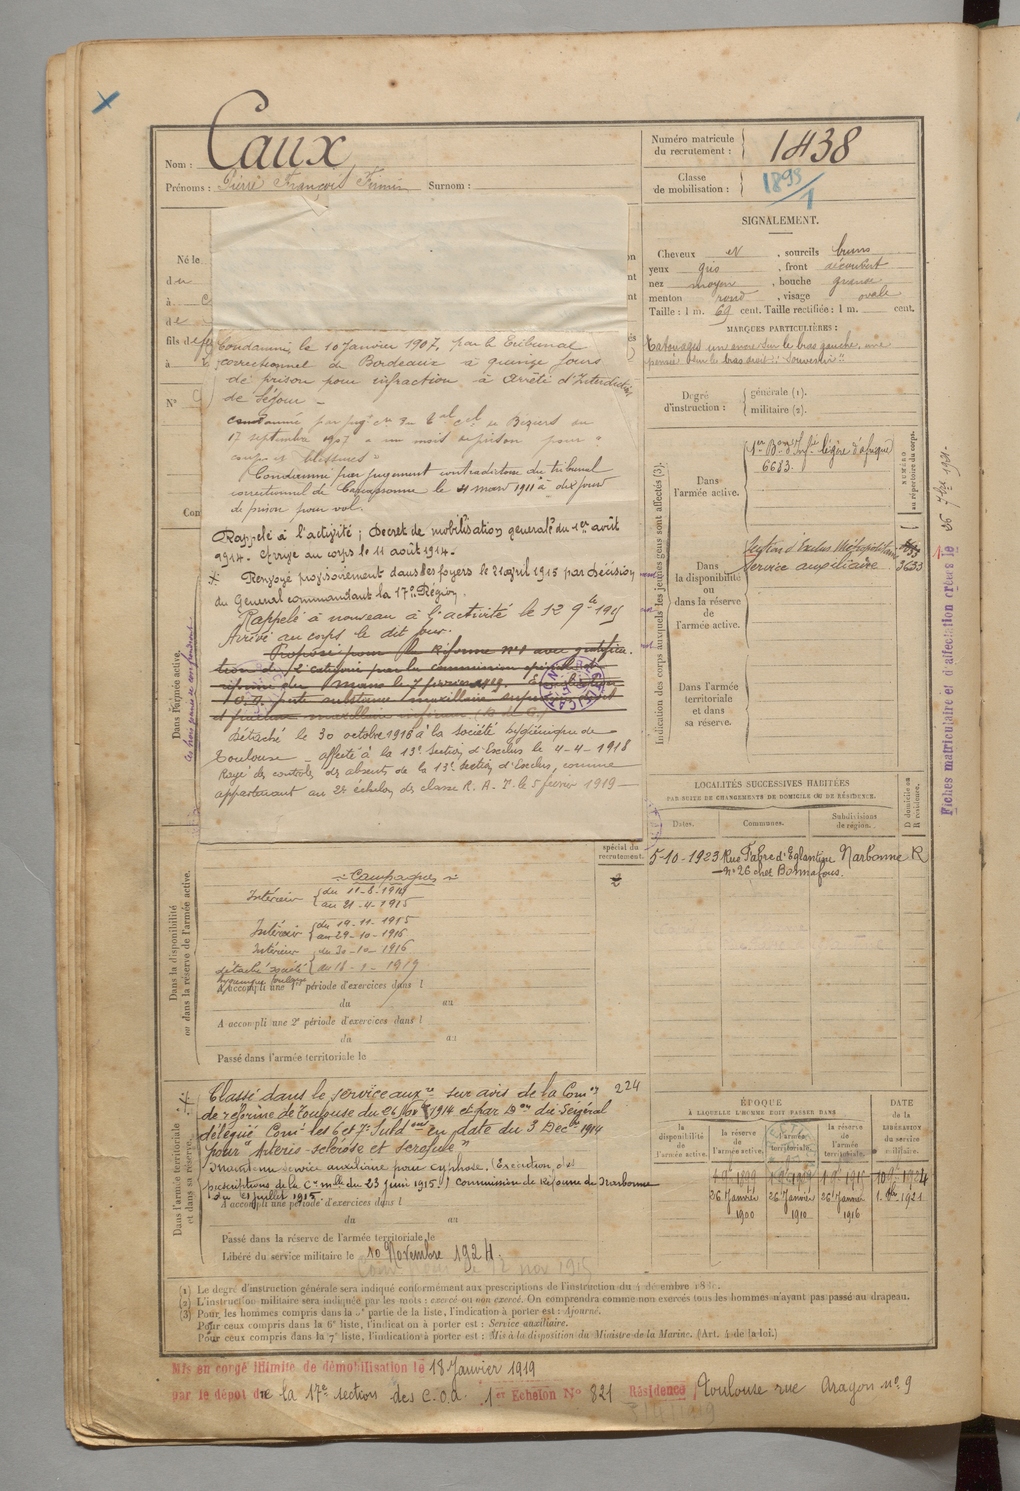 Nom : Caux
Prénoms : Pierre François Firmin Surnom :
Numéro matricule
du recrutement : 1438
Classe
de mobilisation : 1895/1
SIGNALEMENT.
Cheveux et sourcils bruns
yeux gris, front découvert
nez moyen, bouche grande
menton rond, visage ovale
Taille : 1 m. 69 cent. Taille rectifiée : 1 m. cent.
MARQUES PARTICULIÈRES :
Tatouages une ancre sur le bras gauche, une
pensée sur le bras droit : Souvenir
Degré
d'instruction :
générale (1).
militaire (2).
Né le
du
à
de
fils de
à
N°
Condamné le 10 Janvier 1907, par le Tribunal
correctionnel de Bordeaux à quinze jours
de prison pour infraction à Arrêté d'Interdiction
de Séjour -
Condamné par jugt du de Béziers du
17 septembre 1907 à un mois de prison pour "
coups et blessures "
Condamné par jugement contradictoire du tribunal
correctionnel de Carcassonne le 21 mars 1911 à dix jours
de prison pour vol.
Rappelé à l'activité ; Décret de mobilisation générale du 1er août
1914. Arrivé au corps le 11 août 1914.
Renvoyé provisoirement dans ses foyers le 21 avril 1915 par décision
du Général commandant la 17e Région.
Rappelé à nouveau à l'activité le 12 9bre 1915
Arrivé au corps le dit jour.
Proposé pour la Réforme N°1 avec gratifica
tion de catégorie par la commission spéciale de
réforme du Mans le 7 février 1919.
perte substance maxillaire supérieur
et maxillaire inférieur
Détaché le 30 octobre 1916 à la société hygiénique de
Toulouse _ affecté à la 13e Section d'Exclus le 4-4-1918
Rayé des contrôles des absents de la 13e section d'Exclus, comme
appartenant au 2e échelon de classe R. A. T. le 5 février 1919
Dans l'armée active.
Indication des corps auxquels les jeunes gens sont affectés (3).
Dans
l'armée active.
1er Bon d'Infie légère d'Afrique
6683.
NUMÉRO
au répertoire du corps.
Dans
la disponibilité
ou
dans la réserve
de
l'armée active.
Section d'Exclus Métropolitaine
Service auxiliaire
3633
Dans l'armée
territoriale
et dans
sa réserve.
Fiches matriculaire et d'affectation créées le 26 7bre 1921.
LOCALITÉS SUCCESSIVES HABITÉES
PAR SUITE DE CHANGEMENTS DE DOMICILE OU DE RÉSIDENCE.
Dates. Communes. Subdivisions
de région.
D domicile ou
R résidence.
5-10-1923 Rue Fabre d'Eglantine Narbonne R
n° 26 chez Bonnafous.
spécial du
recrutement.
Dans la disponibilité
ou dans la réserve de l'armée active.
Campagnes
Intérieur du 11-8-1914
au 21-4-1915
Intérieur du 19-11-1915
au 29-10-1916
Intérieur du 30-10-1916
détaché société au 18-1-1919
hygiénique Toulouse
A accompli une 1re période d'exercices dans l
du au
A accompli une 2e période d'exercices dans l
du au
Passé dans l'armée territoriale le
Dans l'armée territoriale
et dans sa réserve.
Classé dans le service auxre sur avis de la Comon 224
de réforme de Toulouse du 26 Nov 1914 et par Don du Général
délégué Comt les 6 et 7e Subdons en date du 3 Decbre 1914
pour "Arterio-sclérose et scrofule"
Maintenu service auxiliaire pour cyphose. (Exécution des
prescriptions de la Cre mlle du 23 juin 1915.) Commission de Réforme de Narbonne
du 21 juillet 1915
A accompli une période d'exercices dans l
du au
Passé dans la réserve de l'armée territoriale le
Libéré du service militaire le 10 Novembre 1924.
ÉPOQUE
À LAQUELLE L'HOMME DOIT PASSER DANS
la
disponibilité
de
l'armée active.
la réserve
de
l'armée active.
l'armée
territoriale.
la réserve
de
l'armée
territoriale.
DATE
de la
LIBÉRATION
du service
militaire.
26 Janvier
1900
26 Janvier
1910
26 Janvier
1916
(1) Le degré d'instruction générale sera indiqué conformément aux prescriptions de l'instruction du 4 décembre
(2) L'instruction militaire sera indiquée par les mots : exercé ou non exercé. On comprendra comme non exercés tous les hommes n'ayant pas passé au drapeau.
(3) Pour les hommes compris dans la partie de la liste, l'indication à porter est : Ajourné.
Pour ceux compris dans la 6e liste, l'indication à porter est : Service auxiliaire.
Pour ceux compris dans la 7e liste, l'indication à porter est : Mis à la disposition du Ministre de la Marine. (Art. 4 de la loi.)
Mis en congé illimité de démobilisation le 18 Janvier 1919
par le dépôt de la 17e section des C.O.A. 1er Echelon N° 821 Résidence Toulouse rue Aragon n° 9